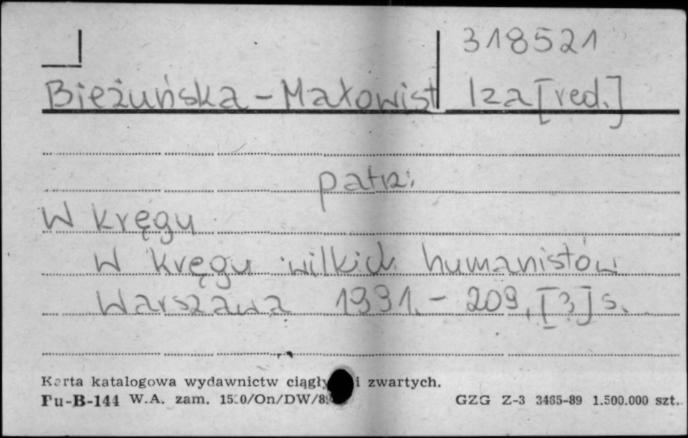 318521
Bieżuńska-Małowist Iza [red.]
patrz:
W kręgu
W kręgu wilkich humanistów
Warszawa 1991. - 209, [3] s.
Karta katalogowa wydawnictw ciągły i zwartych.
Pu-B-144 W.A. zam. /On/DW/8
GZG Z-3 3465-89 1.500.000 szt.